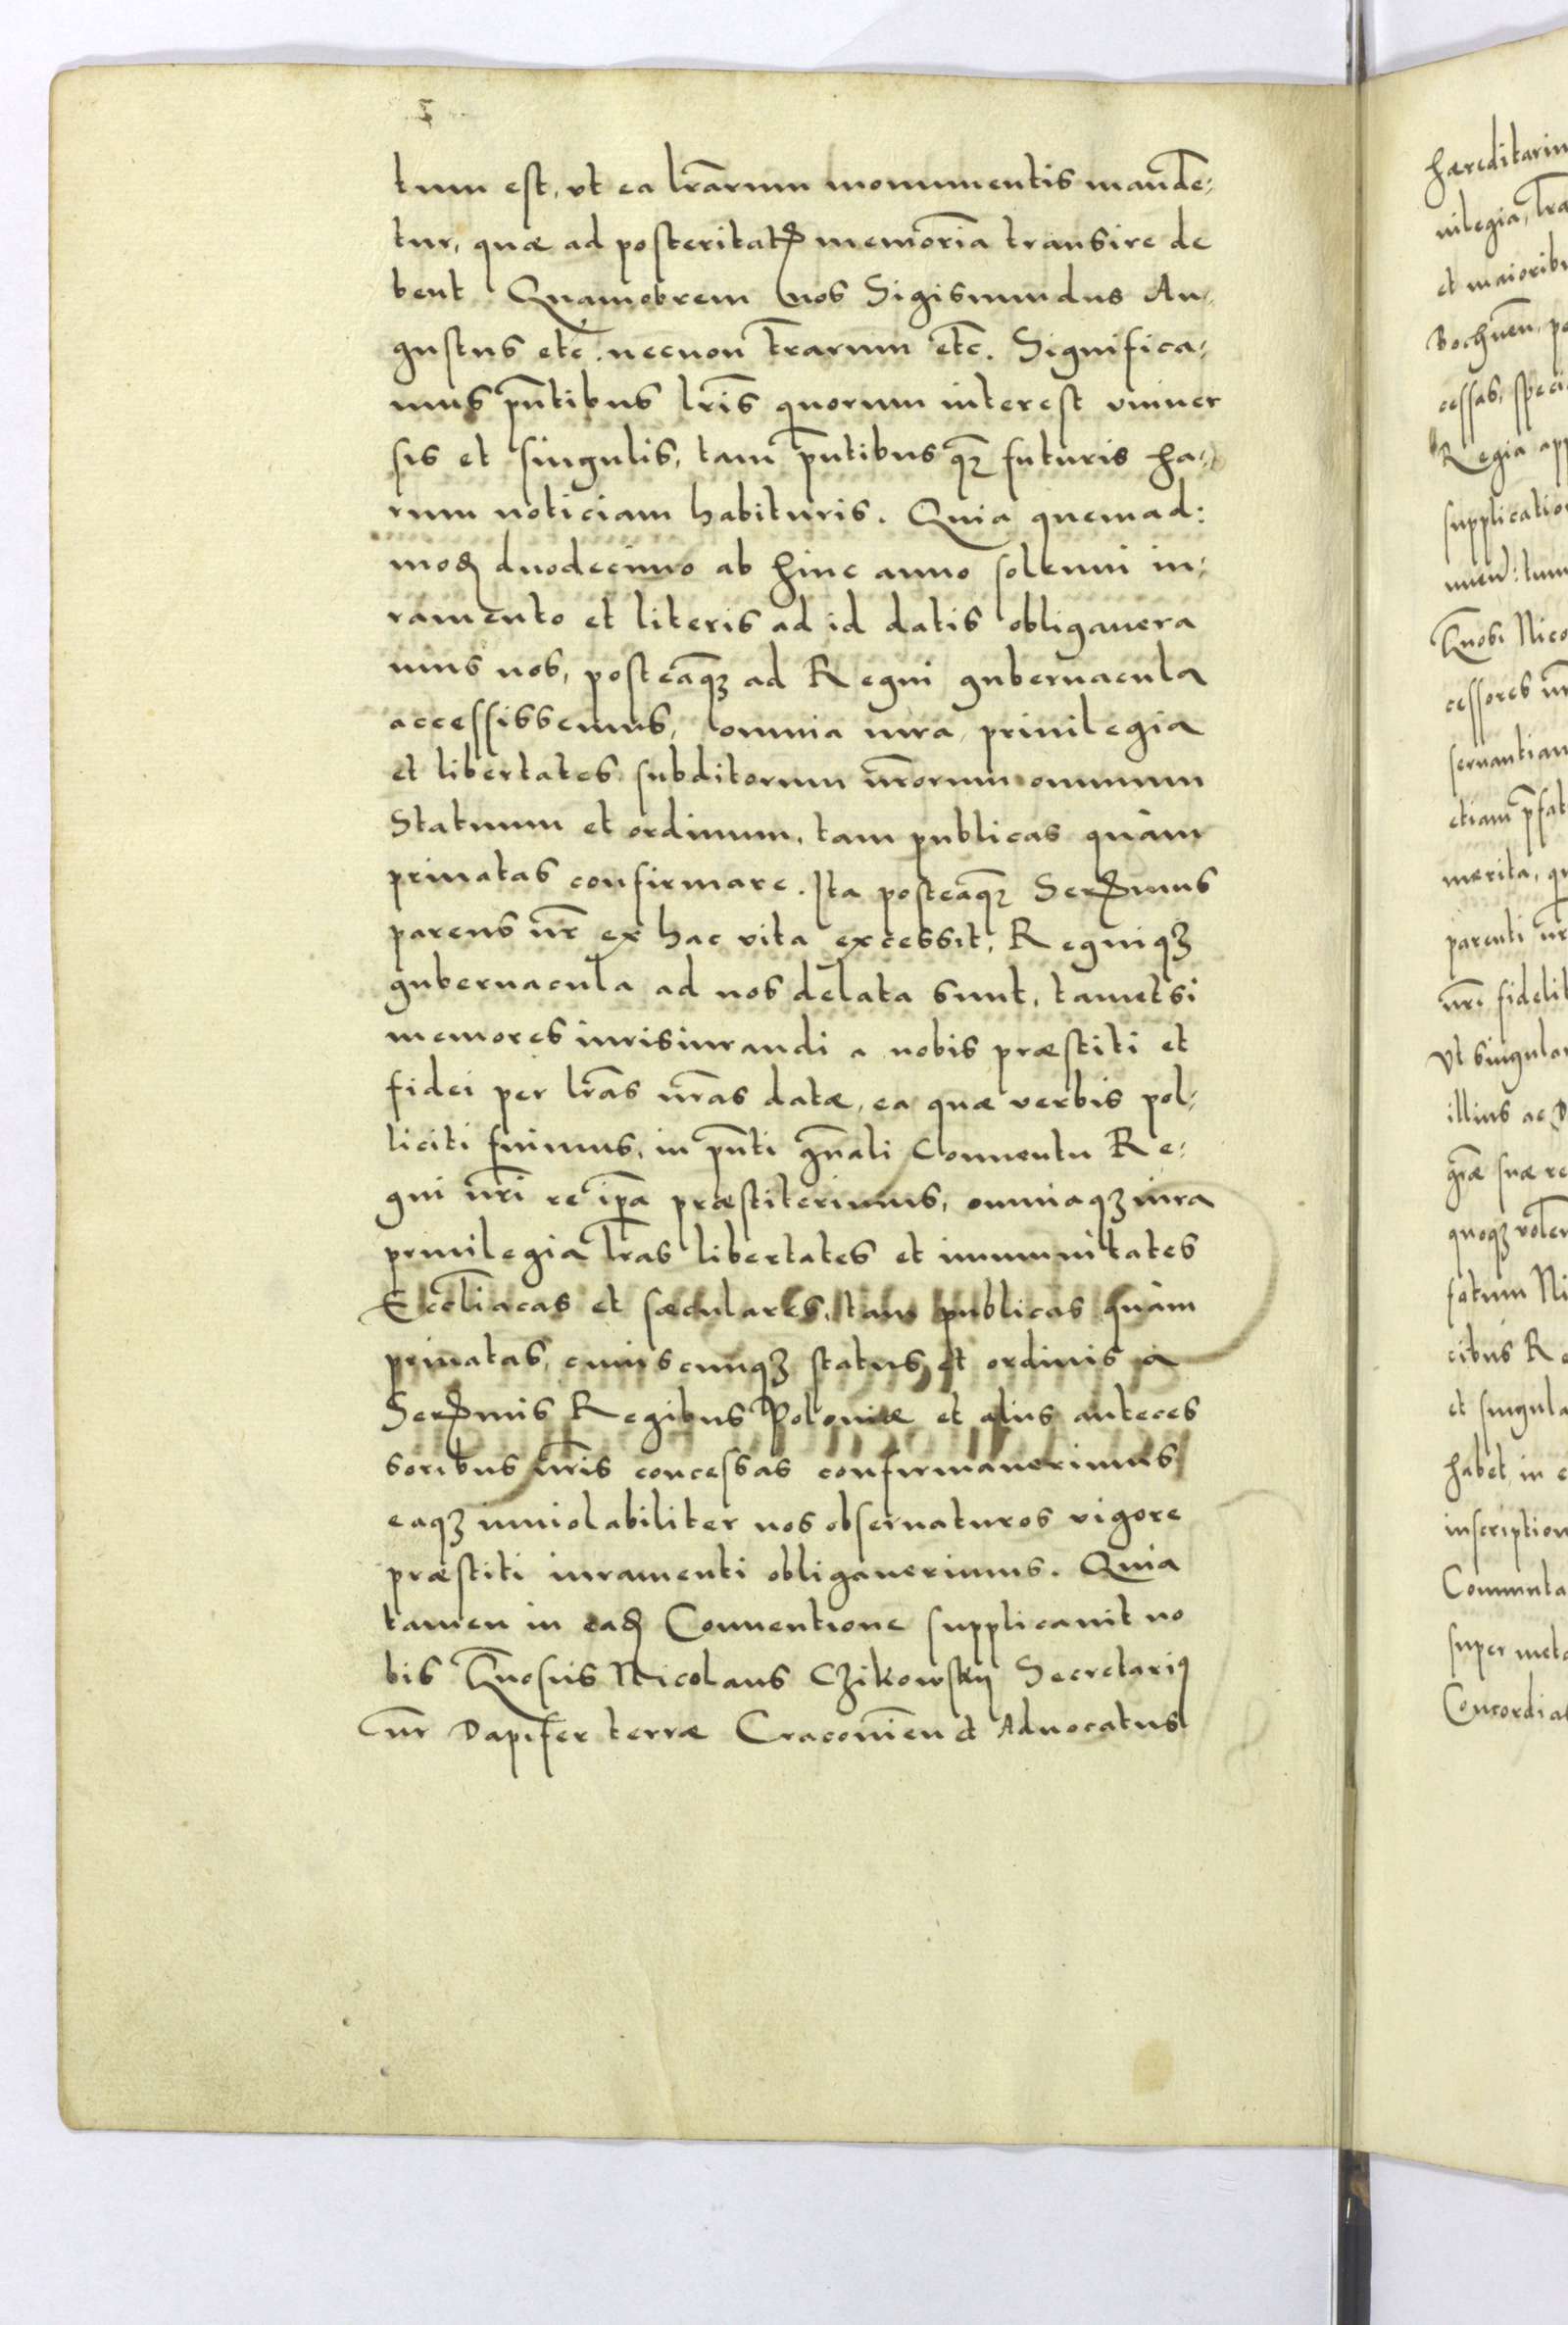 tum est, vt ea lr̃arum monumentis mand̃e:
tur, quæ ad posteritatẽ memoriã transire de
bent Quamobrem nos Sigismundus Au,
gustus etc̃. necnon tr̃arum etc̃. Significa,
mus pñtibus lr̃is quorum interest vniuer
sis et singulis, tam pñtibus qꝫ futuris ha,
rum noticiam habituris. Quia quemad:
modͫ duodecimo ab hinc anno solenni iu,
ramento et literis ad id datis obligauera
mus nos, posteaq̃ꝫ ad Regni gubernacula
accessissemus, omnia iura, priuilegia
et libertates subditorum nr̃orum omnium
Statuum et ordinum, tam publicas quàm
priuatas confirmare. Ita posteaq̃ꝫ Serẽmus
parens nr̃ ex hac vita excessit, Regniqꝫ
gubernacula ad nos delata sunt, tametsi
memores iurisiurandi a nobis præstiti et
fidei per lr̃as nr̃as datæ, ea quæ verbis pol,
liciti fuimus, in pñti gñali Conuentu Re:
gni nr̃i re ip̃a præstiterimus, omniaqꝫ iura
priuilegia lr̃as libertates et immunitates
Eccl̃iacas et sæculares, tam publicas quàm
priuatas, cuiuscunqꝫ status et ordinis à
Serẽmis Regibus Poloniæ et aliis anteces
soribus nr̃is concessas confirmauerimus
eaqꝫ inuiolabiliter nos obseruaturos vigore
præstiti iuramenti obligauerimus. Quia
tamen in eadͫ Conuentione supplicauit no
bis Gñosus Nicolaus Czikowskij Secretariꝰ
nr̃ Dapifer terræ Cracouieñ et Aduocatus
hæreditariu
uilegia, lr̃a
et maioribu
Bochneñ, pe
cessas, speci
Regia app
supplicatio
Gñosi Nico
cessores nr̃
seruantiam
etiam p̃fat
merita, qu
parenti nr̃
nr̃i fidelit
Vt singular
illius ac D
gr̃æ suæ re
quoqꝫ volen
fatum Ni
cibus Re
et singula
habet in e
inscription
Commuta
super meta
Concordia